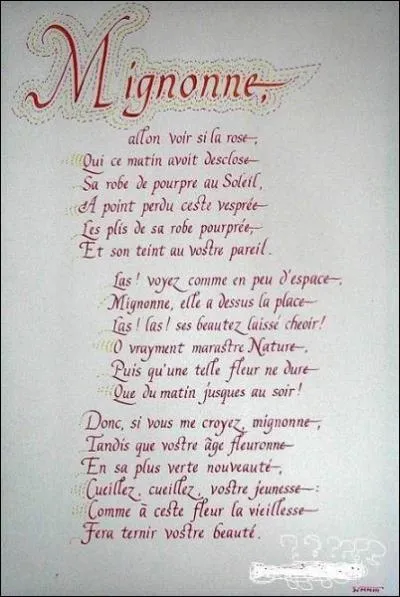 Mignonne,
allon voir si la rose,
Qui ce matin avoit desclose
Sa robe de pourpre au Soleil,
A point perdu ceste vesprée
Les plis de sa robe pourprée,
Et son teint au vostre pareil.
Las! voyez comme en peu d'espace,
Mignonne, elle a dessus la place
Las! las! ses beautez laissé cheoir!
O vrayment marastre Nature,
Puis qu'une telle fleur ne dure
Que du matin jusques au soir!
Donc, si vous me croyez, mignonne,
Tandis que vostre âge fleuronne
En sa plus verte nouveauté,
Cueillez, cueillez, vostre jeunesse:
Comme à ceste fleur la vieillesse
Fera ternir vostre beauté.